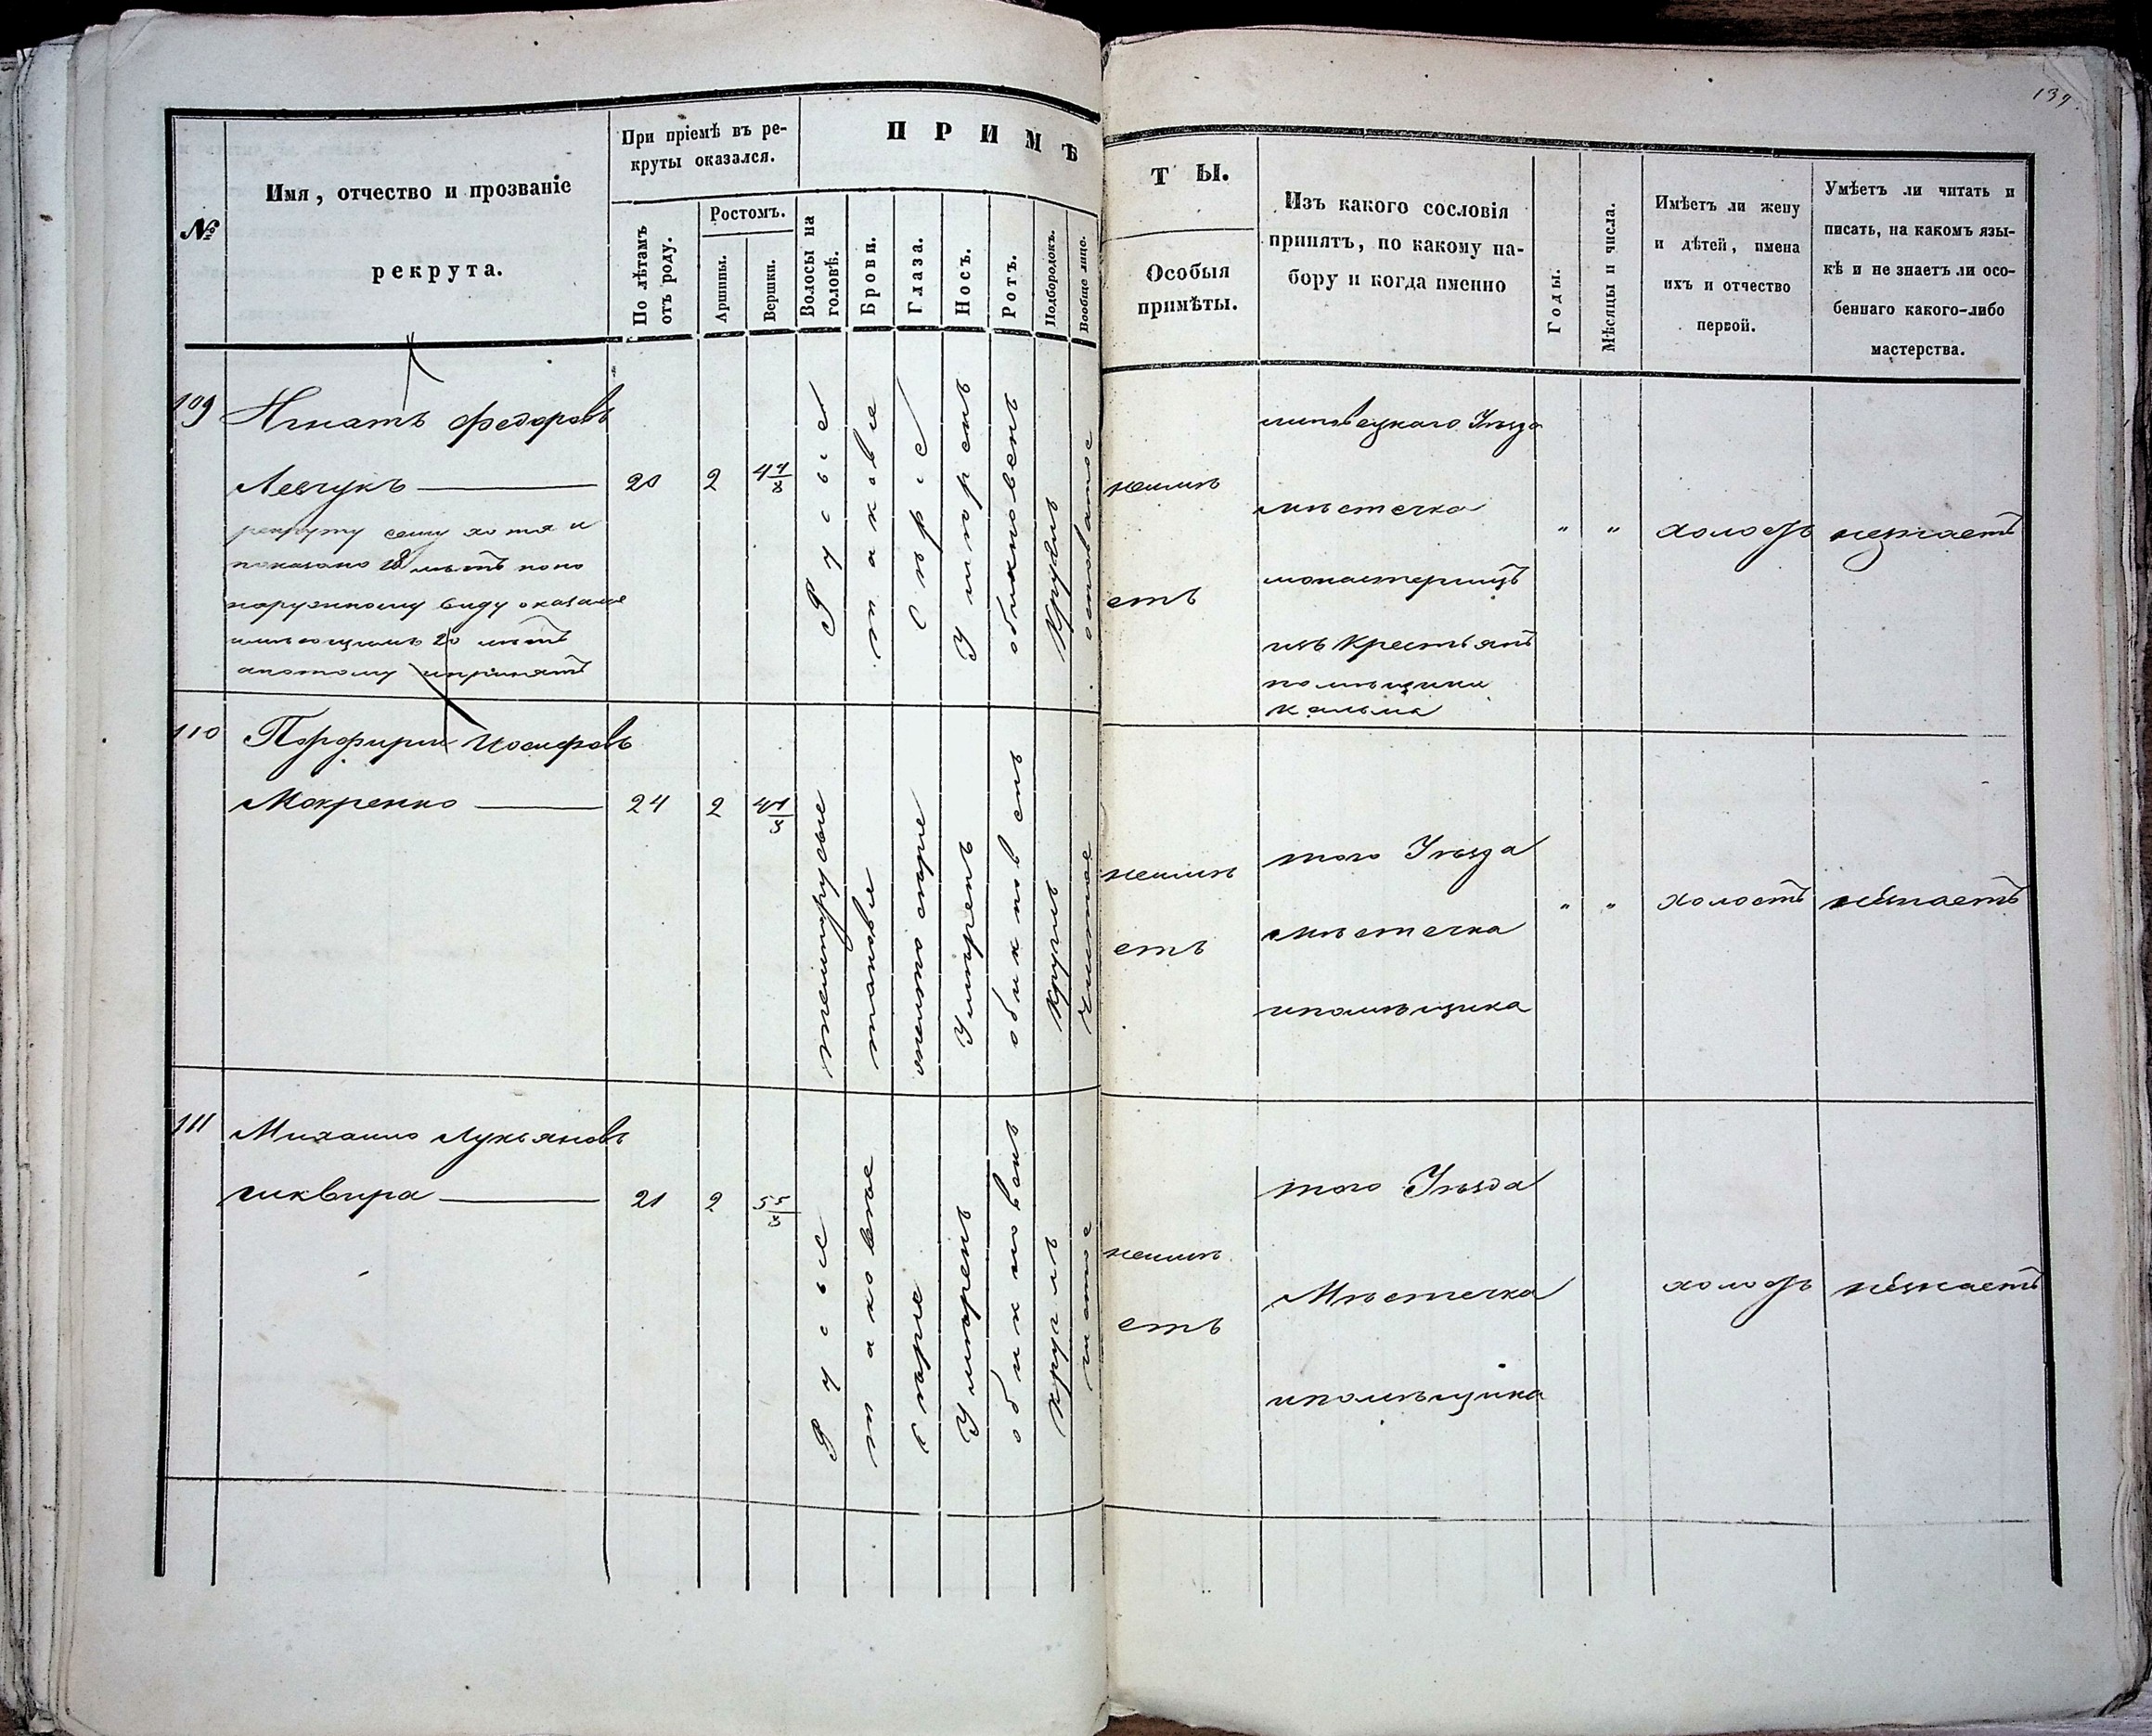 139
№
Имя, отчество и прозваніе
рекрута.
При пріемѣ въ ре-
круты оказался.
По лѣтамъ
отъ роду.
Ростомъ.
Аршины.
Вершки.
ПРИМѢ
Волосы на
головѣ.
Брови.
Глаза.
Носъ.
Ротъ.
Подбородокъ.
Вообще лице.
ТЫ.
Особыя
примѣты.
Изъ какого сословія
принятъ, по какому на-
бору и когда именно
Годы.
Мѣсяцы и числа.
Имѣетъ ли жену
и дѣтей, имена
ихъ и отчество
первой.
Умѣетъ ли читать и
писать, на какомъ язы-
кѣ и не знаетъ ли осо-
беннаго какого-либо
мастерства.
109
Игнатъ Федоровъ
Левчукъ
рекруту сему хотя и
показано 18 лѣтъ но по
наружному виду оказался
имѣющимъ 20 лѣтъ
апотому ипринятъ
20
2
4 4/8
Русые
таковые
Сѣрые
Умѣренъ
обыкновенъ
Круглъ
неимѣ
етъ
Уѣзда
мѣстечка
монастырищъ
изъ Крестьянъ
помѣщика
" "
холостъ
незнаетъ
110
Порфирій Иосифовъ
Мокренко
24
2
темнорусые
таковыя
сѣрые
Умѣренъ
обыкновенъ
Круглъ
чистое
неимѣ
етъ
того Уѣзда
мѣстечка
ипомѣщика
" "
холостъ
незнаетъ
111
Михаило Лукьяновъ
чиквира
21
2
5 5/8
Русые
таковые
сѣрые
Умѣренъ
обыкновенъ
Круглъ
чистое
неимѣ
етъ
того Уѣзда
Мѣстечка
ипомѣщика
холостъ
незнаетъ